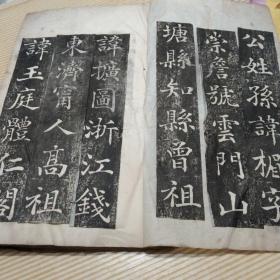 公姓孫諱楫字
崇詹號雲門山
東濟甯人高祖
諱擴圖浙江錢
塘縣知縣曾祖
諱玉庭體仁閣